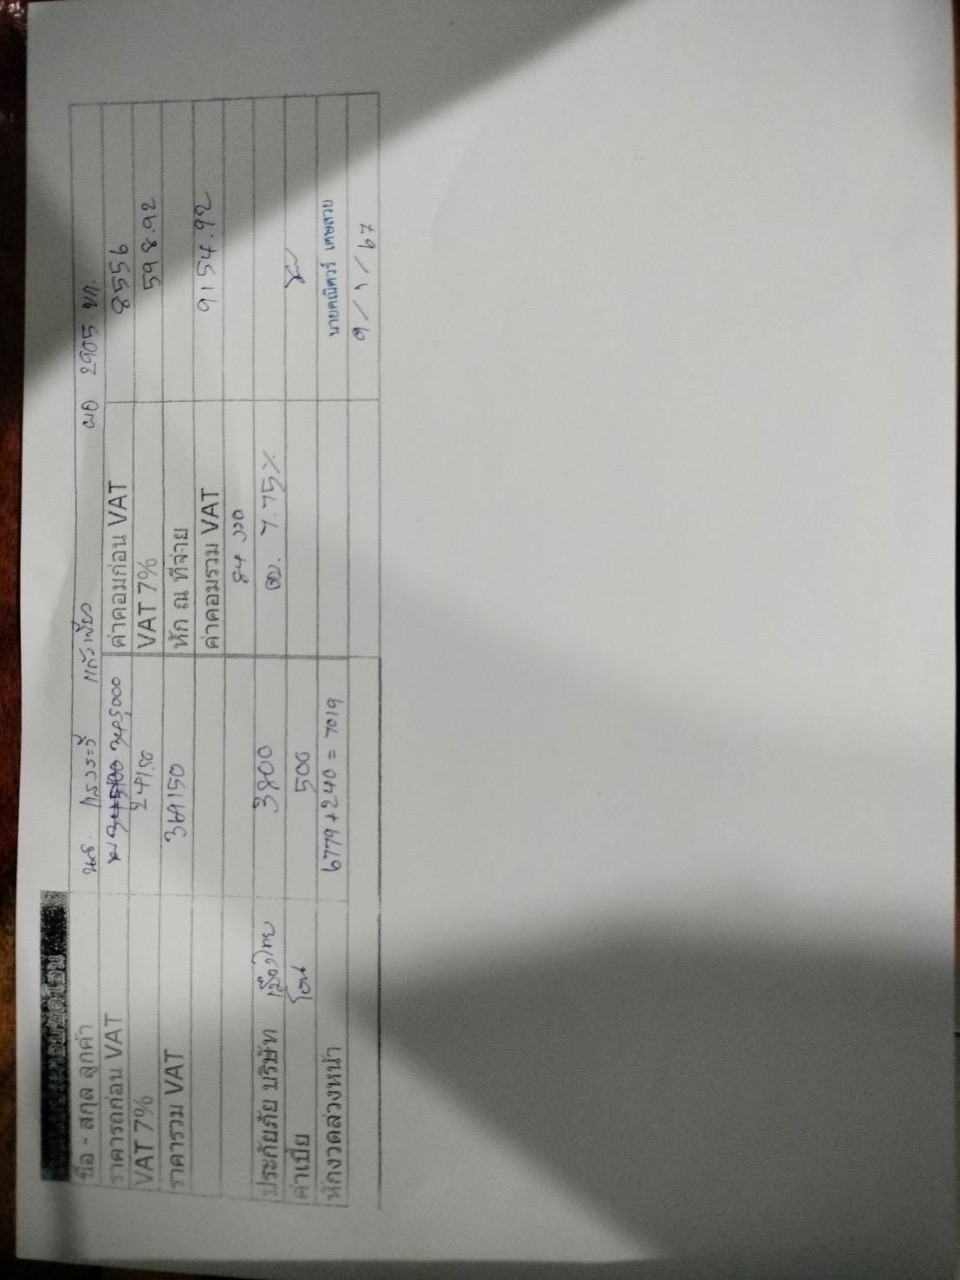 ชื่อ - สกุล ลูกค้า นส. แก้วเขียว ผอ 2905 ขก.
ราคารถก่อน VAT 345000 ค่าคอมก่อน VAT 8556
VAT 7% 24150 VAT 7% 598.92
ราคารวม VAT 369150 หัก ณ ที่จ่าย
ค่าคอมรวม VAT 9154.92
84 งวด
ประกันภัย บริษัท เมืองไทย 3800 ดบ. 7.75%
ค่าเบี้ย โอน 500
หักงวดล่วงหน้า 6779+240 = 7019
9/1/67